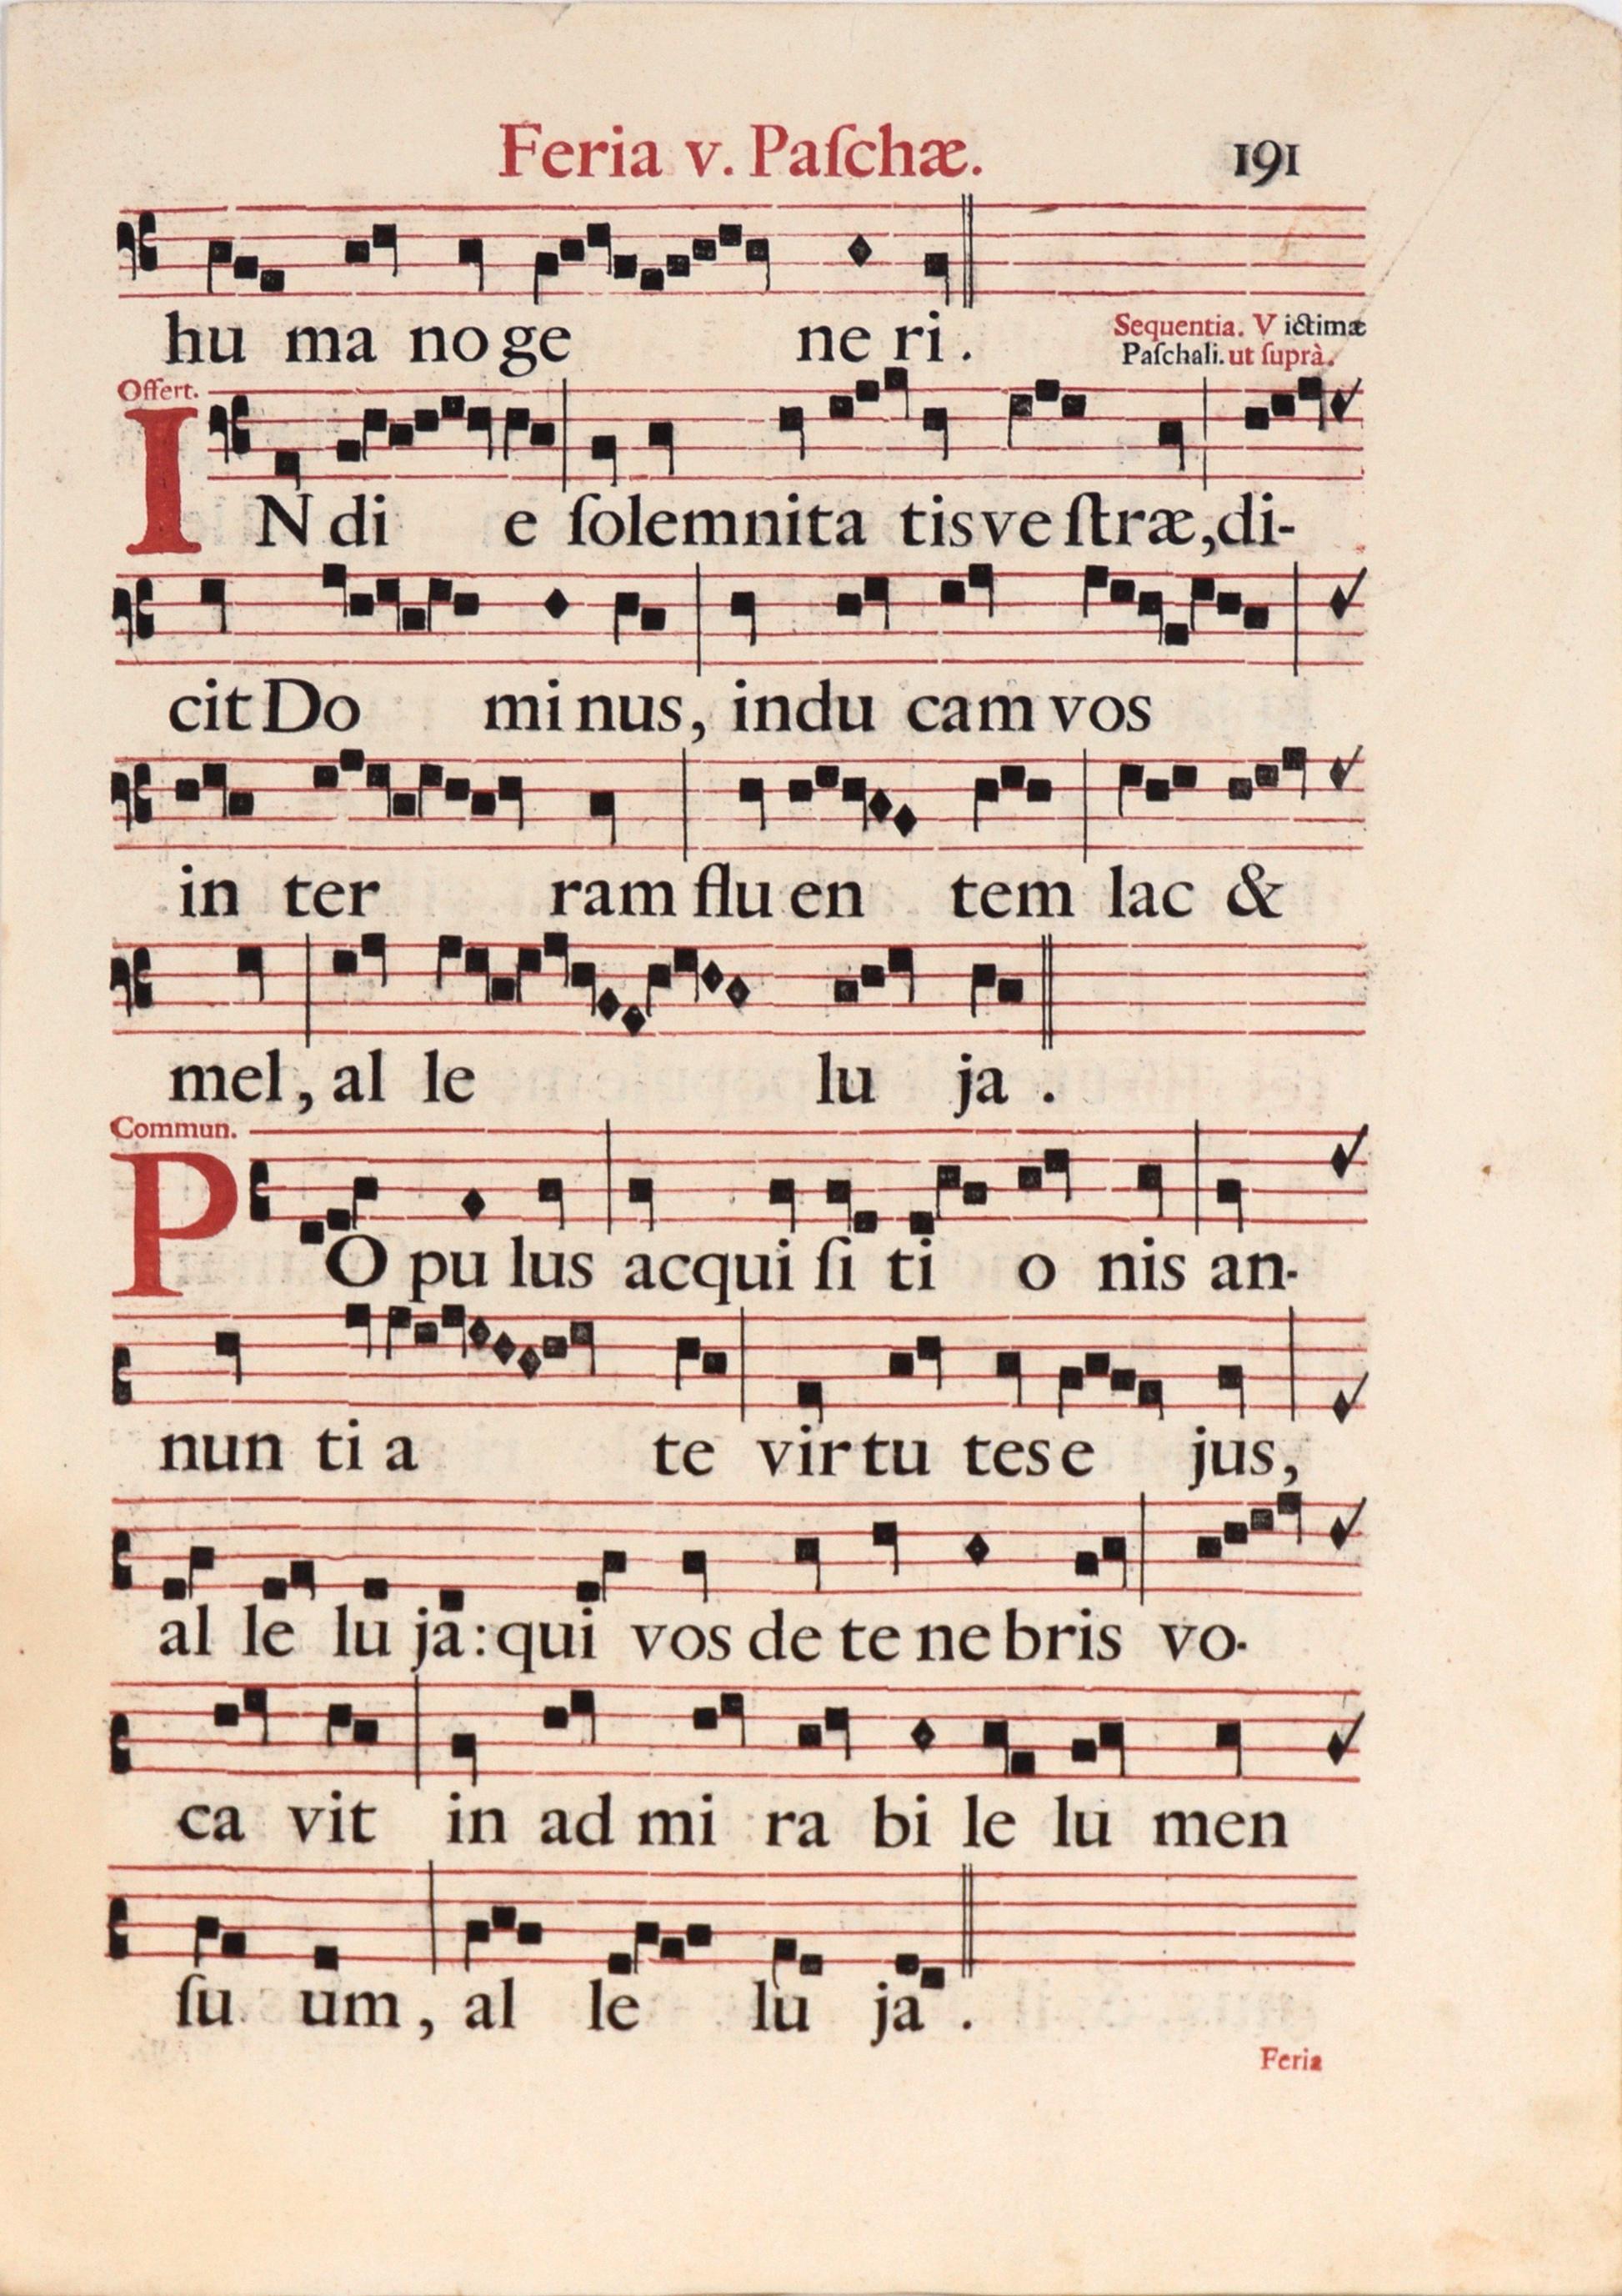 Feria v. Paſchæ. 191
hu ma no ge ne ri .
Sequentia. V ictimæ
Paſchali. ut ſuprà.
Offert.
IN di e ſolemnita tis ve ſtræ, di-
cit Do mi nus, indu cam vos
in ter ram flu en tem lac &
mel, al le lu ja .
Commun.
PO pu lus acqui ſi ti o nis an-
nun ti a te vir tu tes e jus,
al le lu ja: qui vos de te ne bris vo-
ca vit in ad mi ra bi le lu men
ſu um, al le lu ja .
Feria